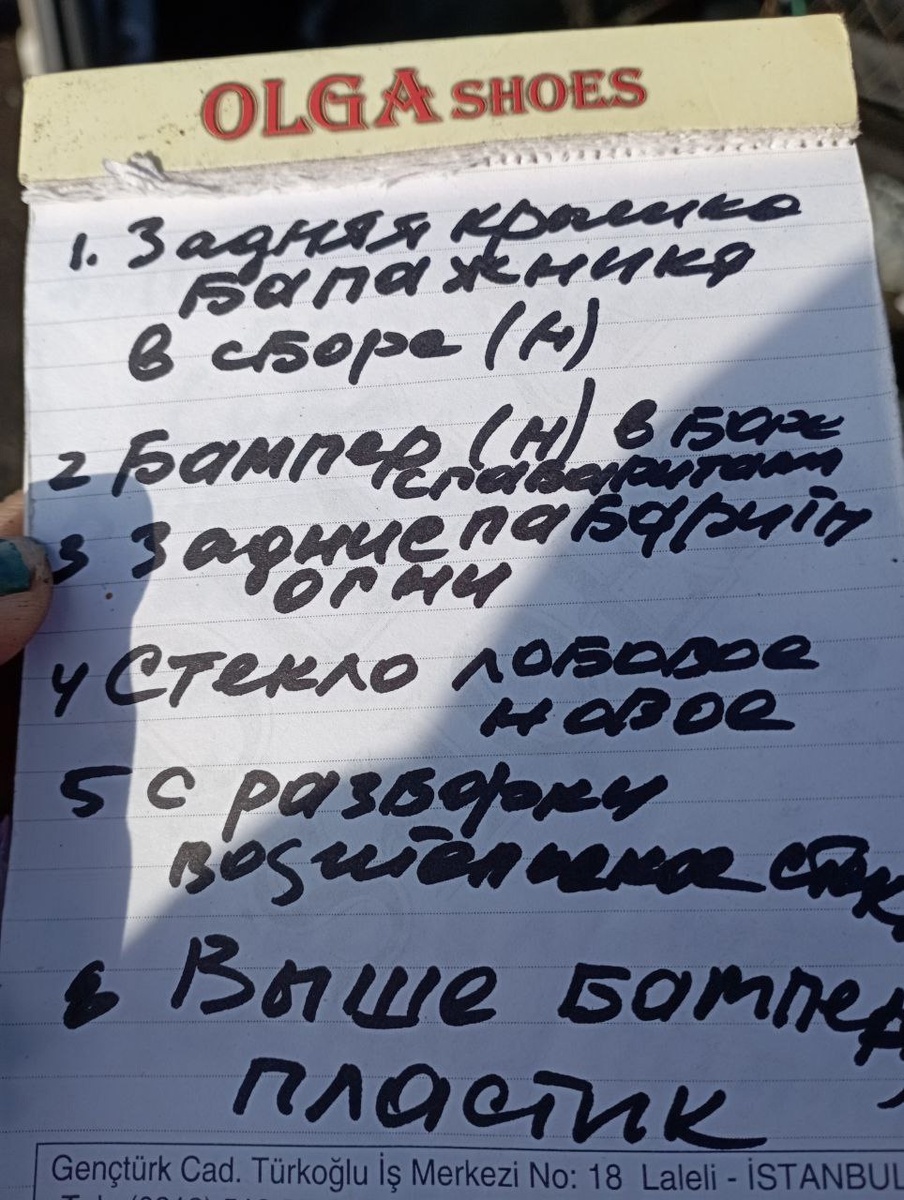 OLGA SHOES
1. Задняя крышка
Багажника
в сборе (н)
2 Бампер (н) в Боре
с габаритами
3 Задние габарит
огни
4 Стекло лобовое
новое
5 С разборки
водительское стек
6 Выше бампер
пластик
Gençtürk Cad. Türkoğlu İş Merkezi No: 18 Laleli - İSTANBUL